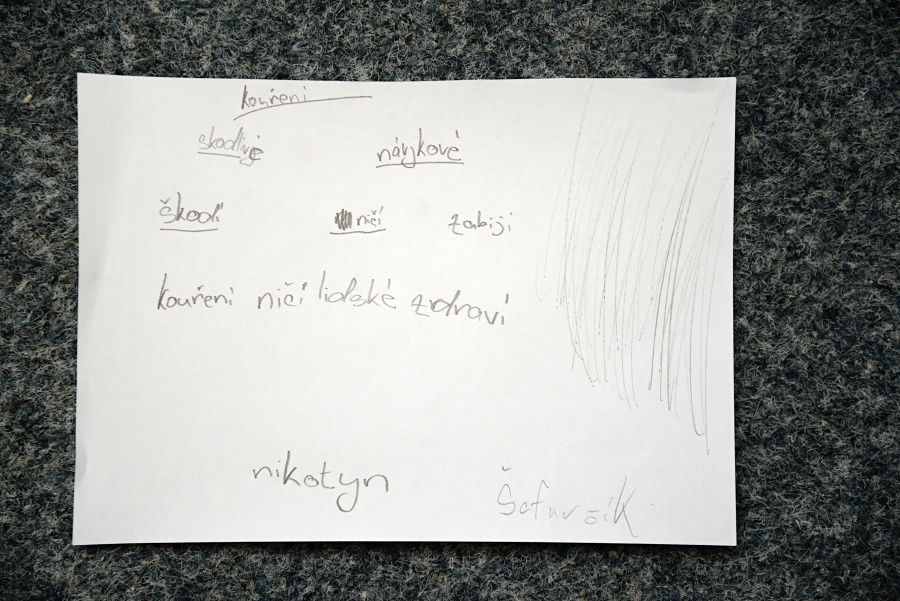 kouření
skodlivé návykové
škodí ničí zabijí
kouření ničí lidské zdraví
nikotyn